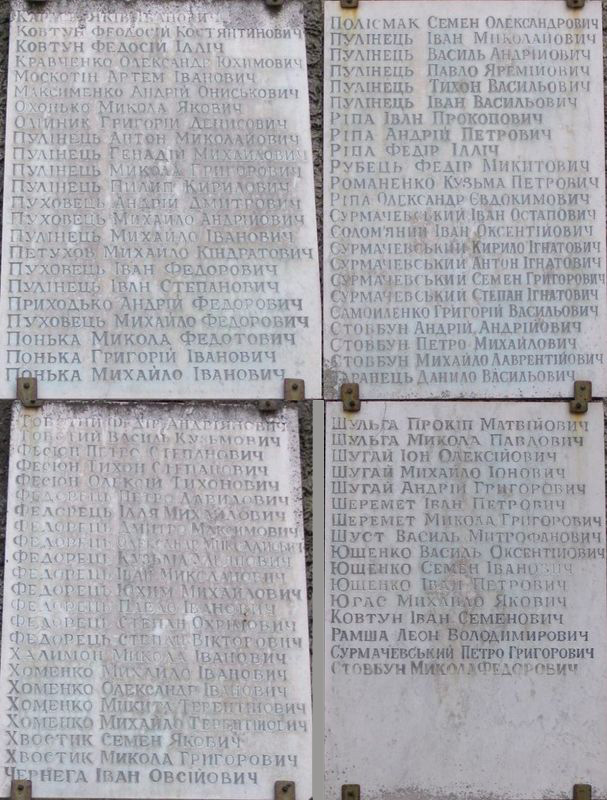 Яків Іванович
Ковтун Феодосій Костянтинович
Ковтун Федосій Ілліч
Кравченко Олександр Юхимович
Москотін Артем Іванович
Максименко Андрій Ониськович
Охонько Микола Якович
Олійник Григорій Денисович
Пулінець Антон Миколайович
Пулінець Генадій Михайлович
Пулінець Микола Григорович
Пулінець Пилип Кирилович
Пуховець Андрій Дмитрович
Пуховець Михайло Андрійович
Пулінець Михайло Іванович
Петухов Михайло Кіндратович
Пуховець Іван Федорович
Пулінець Іван Степанович
Приходько Андрій Федорович
Пуховець Михайло Федорович
Понька Микола Федотович
Понька Григорій Іванович
Понька Михайло Іванович
Полісмак Семен Олександрович
Пулінець Іван Миколайович
Пулінець Василь Андрійович
Пулінець Павло Яремійович
Пулінець Тихон Васильович
Пулінець Іван Васильович
Ріпа Іван Прокопович
Ріпа Андрій Петрович
Ріпа Федір Ілліч
Рубець Федір Микитович
Романенко Кузьма Петрович
Ріпа Олександр Євдокимович
Сурмачевський Іван Остапович
Солом'яний Іван Оксентійович
Сурмачевський Кирило Ігнатович
Сурмачевський Антон Ігнатович
Сурмачевський Семен Григорович
Сурмачевський Степан Ігнатович
Самойленко Григорій Васильович
Стовбун Андрій Андрійович
Стовбун Петро Михайлович
Стовбун Михайло Лаврентійович
Таранець Данило Васильович
Товстий Федір Андріянович
Товстий Василь Кузьмович
Фесюн Петро Степанович
Фесюн Тихон Степанович
Фесюн Олексій Тихонович
Федорець Петро Давидович
Федорець Ілля Михайлович
Федорець Дмитро Максимович
Федорець Олександр Миколайович
Федорець Кузьма
Федорець Іван Миколайович
Федорець Юхим Михайлович
Федорець Павло Іванович
Федорець Степан Охрімович
Федорець Степан Вікторович
Халимон Микола Іванович
Хоменко Михайло Іванович
Хоменко Олександр Іванович
Хоменко Микита Терентійович
Хоменко Михайло Терентійович
Хвостик Семен Якович
Хвостик Микола Григорович
Чернега Іван Овсійович
Шульга Прокіп Матвійович
Шульга Микола Павлович
Шугай Іон Олексійович
Шугай Михайло Іонович
Шугай Андрій Григорович
Шеремет Іван Петрович
Шеремет Микола Григорович
Шуст Василь Митрофанович
Ющенко Василь Оксентійович
Ющенко Семен Іванович
Ющенко Іван Петрович
Югас Михайло Якович
Ковтун Іван Семенович
Рамша Леон Володимирович
Сурмачевський Петро Григорович
Стовбун Микола Федорович